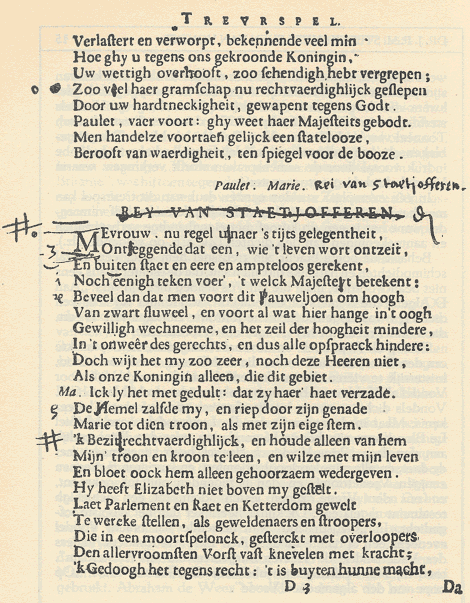 TREVRSPEL.
Verlastert en verworpt, bekennende veel min
Hoe ghy u tegens ons gekroonde Koningin,
Uw wettigh overhooft, zoo schendigh hebt vergrepen;
Zoo veel haer gramschap nu rechtvaerdighlijck geslepen
Door uw hardtneckigheit, gewapent tegens Godt.
Paulet, vaer voort: ghy weet haer Majesteits gebodt.
Men handelze voortaen gelijck een statelooze,
Berooft van waerdigheit, ten spiegel voor de booze.
Paulet. Marie. Rei van Staetjofferen.
REY VAN STAETJOFFEREN.
#.
MEvrouw. nu regel u naer 's tijts gelegentheit,
3
Ontzeggende dat een, wie 't leven wort ontzeit,
En buiten staet en eere en ampteloos gerekent,
i Noch eenigh teken voer', 't welck Majesteyt betekent:
Beveel dan dat men voort dit Pauweljoen om hoogh
Van zwart fluweel, en voort al wat hier hange in't oogh
Gewilligh wechneeme, en het zeil der hoogheit mindere,
In 't onweêr des gerechts, en dus alle opspraeck hindere:
Doch wijt het my zoo zeer, noch deze Heeren niet,
Als onze Koningin alleen, die dit gebiet.
Ma. Ick ly het met gedult: dat zy haer' haet verzade.
De Hemel zalfde my, en riep door zijn genade
Marie tot dien troon, als met zijn eige stem.
# 'k Bezit rechtvaerdighlijck, en houde alleen van hem
Mijn' troon en kroon te leen, en wilze met mijn leven
En bloet oock hem alleen gehoorzaem wedergeven.
Hy heeft Elizabeth niet boven my gestelt.
Laet Parlement en Raet en Ketterdom gewelt
Te wercke stellen, als geweldenaers en stroopers,
Die in een moortspelonck, gesterckt met overloopers
Den allervroomsten Vorst vast knevelen met kracht;
'k Gedoogh het tegens recht: 't is buyten hunne macht,
D 3
Da